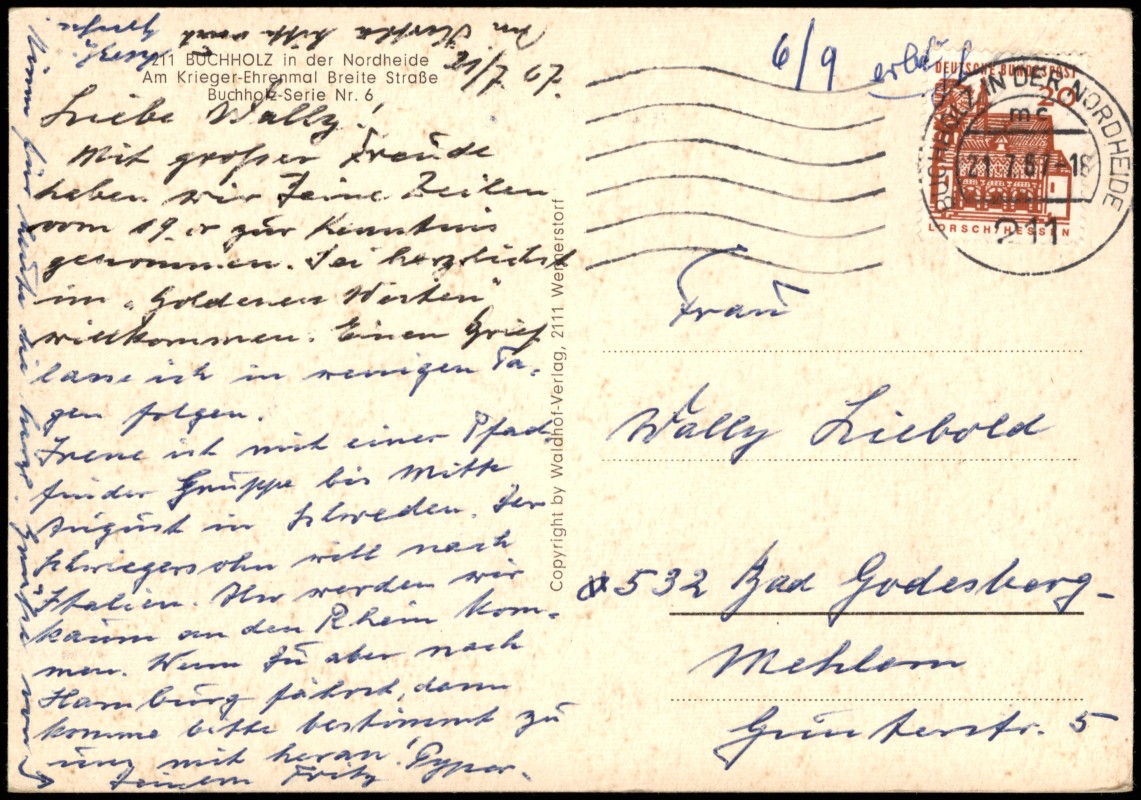 211 BUCHHOLZ in der Nordheide
Am Krieger-Ehrenmal Breite Straße
Buchholz-Serie Nr. 6
21/7 67.
Liebe Wally!
Mit großer Freude
haben wir Deine Zeilen
vom 19. zur Kenntnis
genommen. Sei herzlichst
im "Goldenen Westen"
willkommen. Einen Brief
lasse ich in wenigen Ta-
gen folgen.
Irene ist mit einer Pfad-
finder Gruppe bis Mitte
August in Schweden. Der
Schwiegersohn will nach
Italien. Wir werden
kaum an den Rhein kom-
men. Wenn Du aber nach
Hamburg fährst, dann
komme bitte bestimmt zu
uns mit heran!
Deinem Fritz
Nimm für heute die herzl. Grüße von
Copyright by Waldhof-Verlag, 2111 Wennerstorf
6/9
DEUTSCHE BUNDESPOST
20
LORSCH/HESSEN
BUCHHOLZ IN DER NORDHEIDE
mc
21.7.67-18
211
Frau
Wally Liebold
532 Bad Godesberg-
Mehlem
Gunterstr. 5